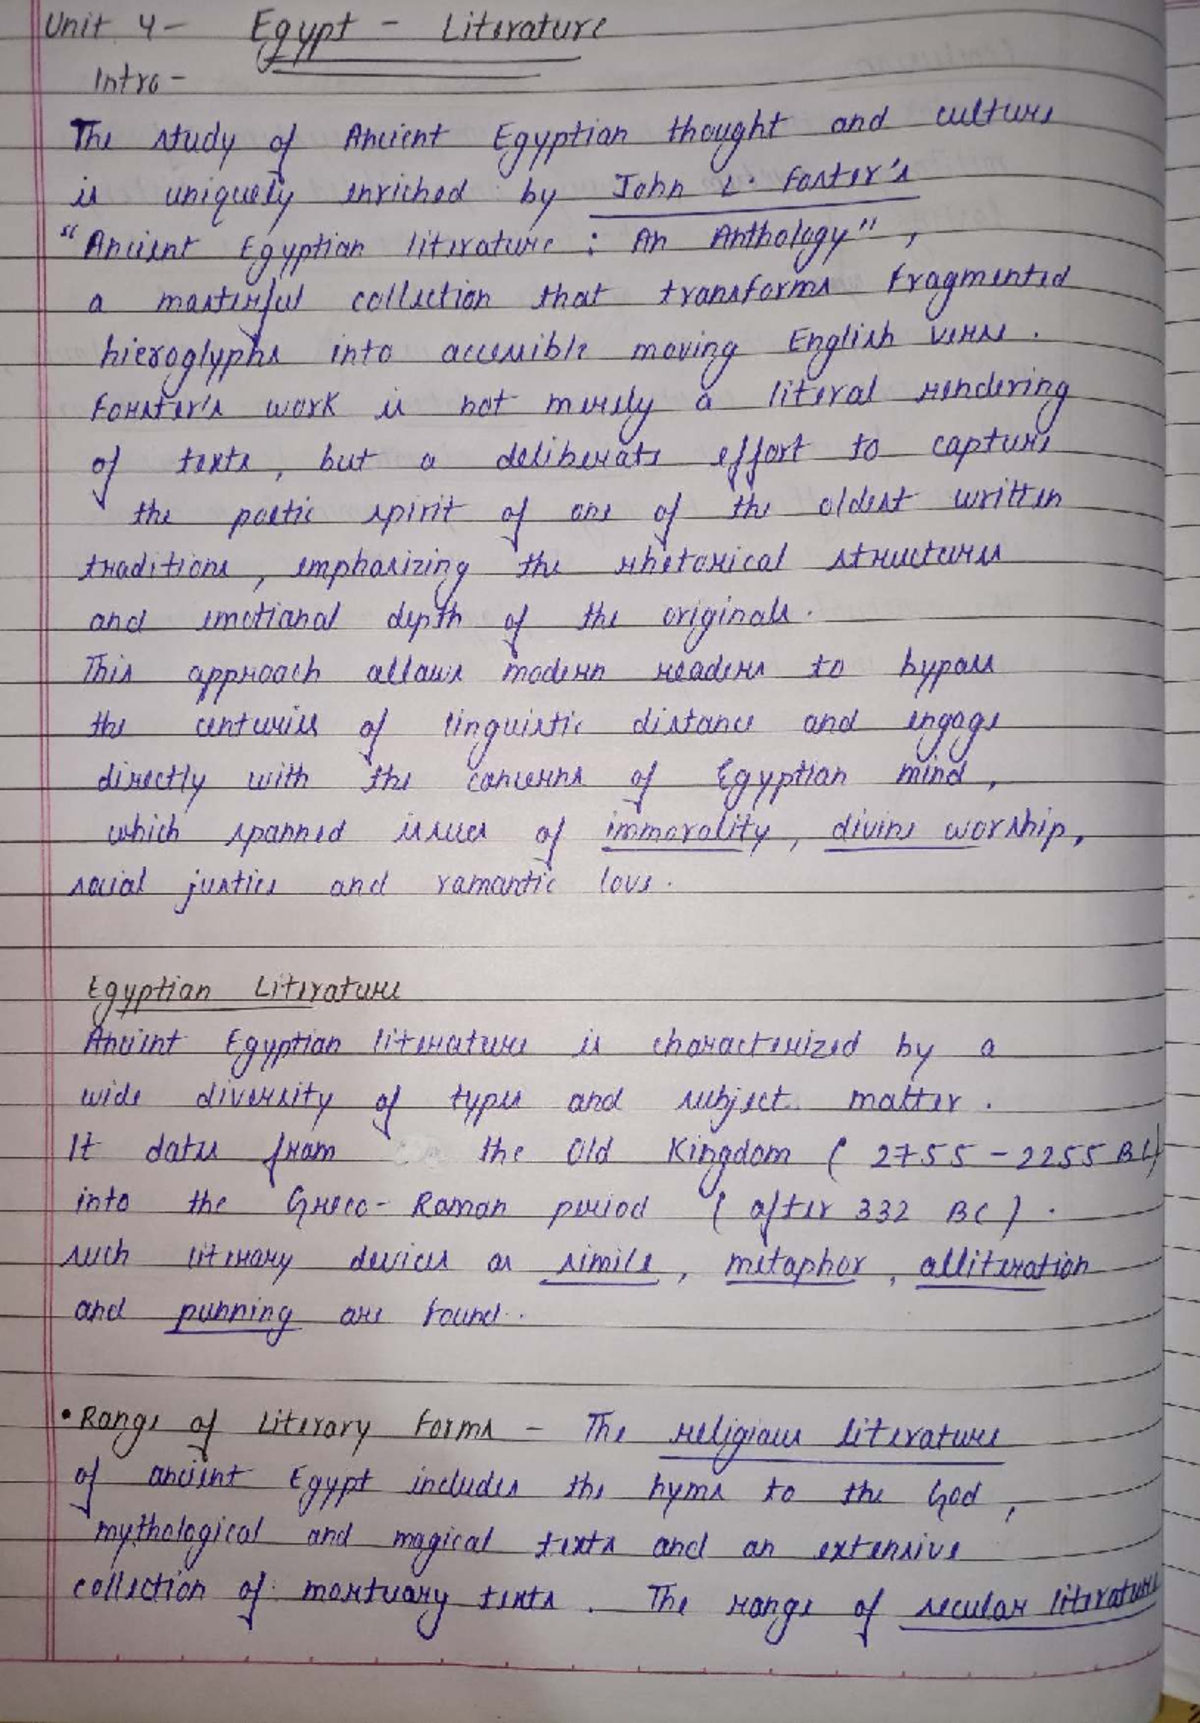 Unit 4- Egypt - Literature
Intro -
The study of Ancient Egyptian thought and culture
is uniquely enriched by John L. Foster's
"Ancient Egyptian literature : An Anthology",
a masterful collection that transforms fragmented
hieroglyphs into accessible moving English verse.
Forster's work is not merely a literal rendering
of texts, but a deliberate effort to capture
the poetic spirit of one of the oldest written
traditions, emphasizing the rhetorical structures
and emotional depth of the originals.
This approach allows modern readers to bypass
the centuries of linguistic distance and engage
directly with the concerns of Egyptian mind,
which spanned issues of immorality, divine worship,
social justice and romantic love.
Egyptian Literature
Ancient Egyptian literature is characterized by a
wide diversity of types and subject matter.
It dates from the Old Kingdom (2755-2255 BC)
into the Greco-Roman period (after 332 BC).
such literary devices as simile, metaphor, alliteration
and punning are found.
• Range of Literary Forms - The religious literature
of ancient Egypt includes the hyms to the God,
mythological and magical texts and an extensive
collection of mortuary texts. The range of secular literature